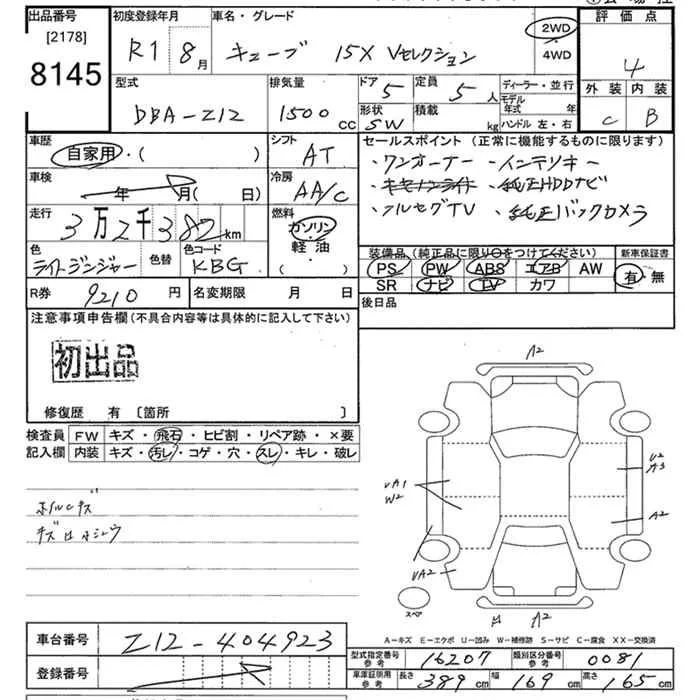 出品番号 初度登録年月 車名・グレード 評価点
[2178] R1 8月 キューブ 15X Vセレクション 2WD・4WD 4
8145
型式 排気量 ドア 5 定員 5人 ディーラー・並行 外装 内装
DBA-Z12 1500cc 形状 SW 積載 kg モデル年式 年 ハンドル 左・右 C B
車歴 シフト セールスポイント(正常に機能するものに限ります)
自家用・( ) AT ・ワンオーナー ・インテリキー
車検 年 月( 日) 冷房 AA/C ・キセノンライト ・純正HDDナビ
走行 3万2千382km 燃料 ガソリン・軽油・( ) ・フルセグTV ・純正バックカメラ
色 ライトジンジャー 色替 色コード KBG
装備品(純正品に限り○をつけてください) 新車保証書
PS PW ABS エアB AW 有・無
SR ナビ TV カワ
R券 9210円 名変期限 月 日 後日品
注意事項申告欄(不具合内容等は具体的に記入して下さい)
初出品
修復歴 有 〔箇所 〕
検査員 FW キズ・飛石・ヒビ割・リペア跡・×要
記入欄 内装 キズ・汚レ・コゲ・穴・スレ・キレ・破レ
A2
U2
A3
UA1
W2
A2
UA2
スペア
A2
A-キズ E-エクボ U-凹み W-補修跡 S-サビ C-腐食 XX-交換済
車台番号 Z12-404923
登録番号
型式指定番号 参考 16207 類別区分番号 参考 0081
車庫証明用 参考 長さ 389cm 幅 169cm 高さ 165cm